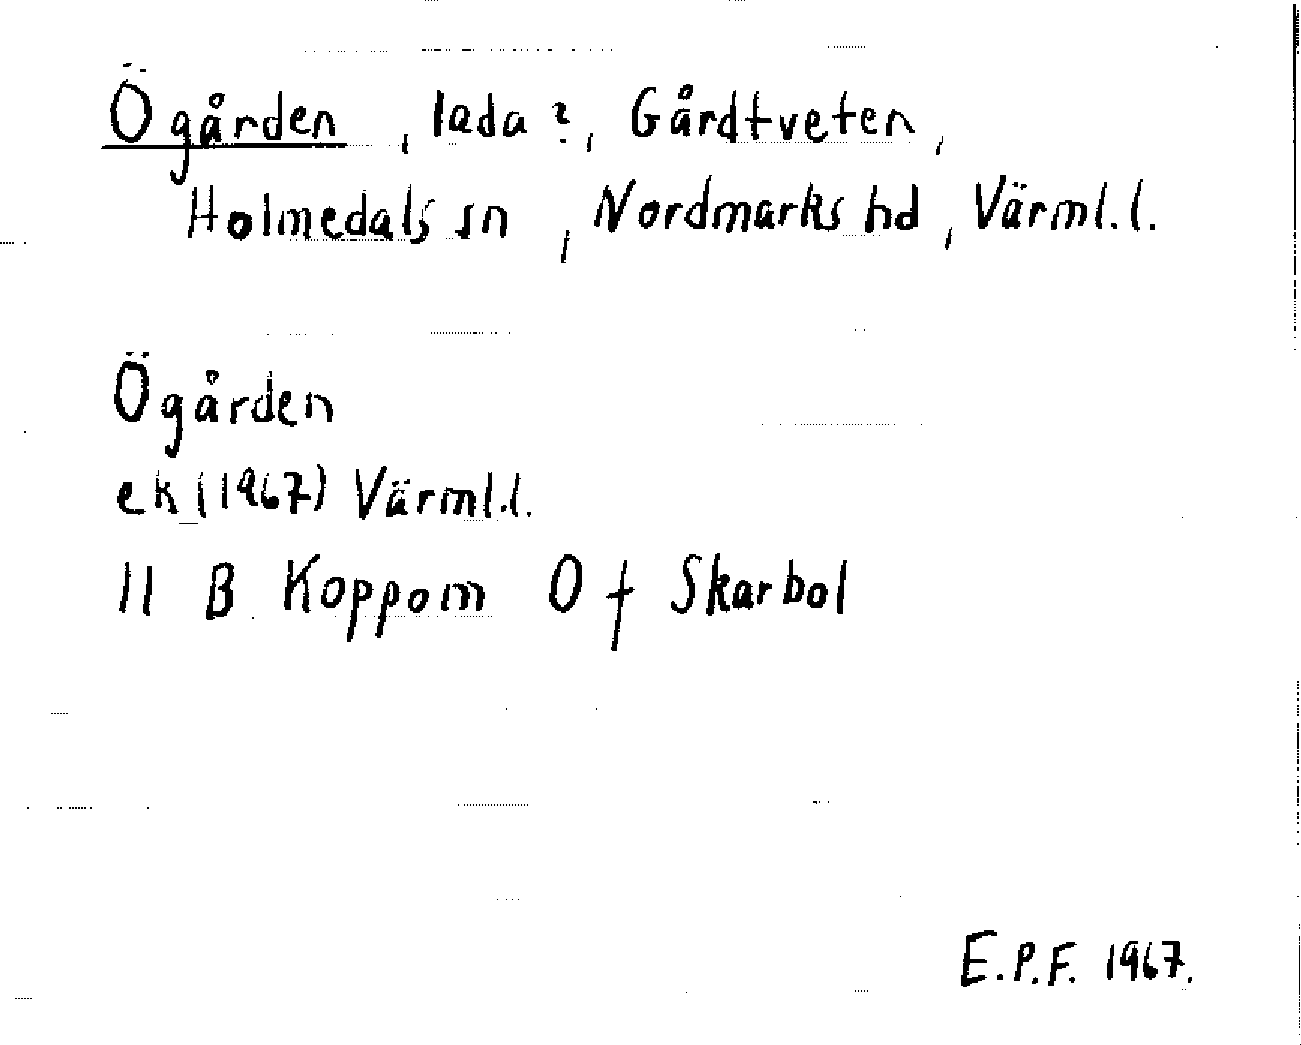 Ögården, lada?, Gårdtveten,
Holmedals sn, Nordmarks hd, Värml.l.
Ögården
ek (1967) Värml.l.
11 B Koppom 0 f Skarbol
E.P.F. 1967.